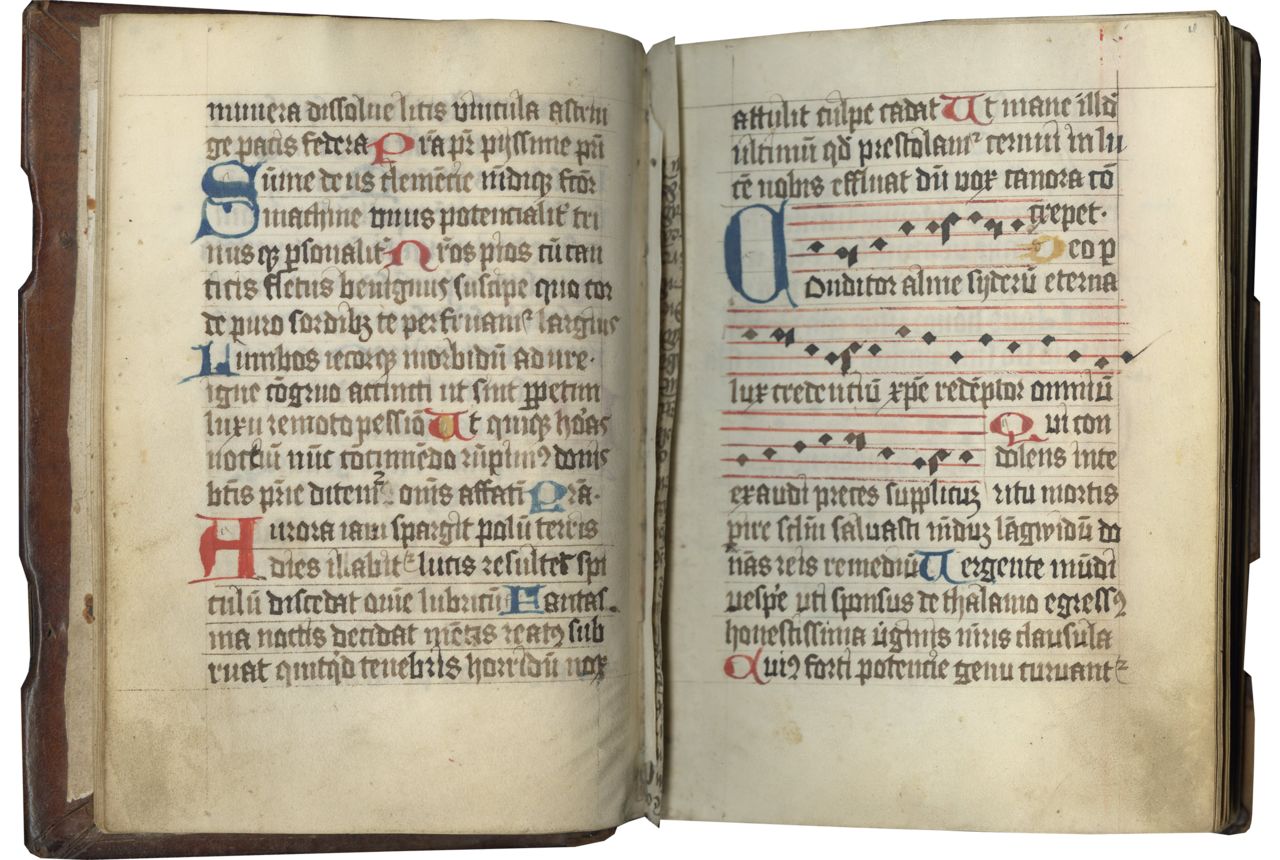 munera dissolue litis vincula astrin
ge pacis federa Pr̄a pr̄ pijssime pūi
Sūme deus clemēcie mūdiqꝫ fctōr
machine vnus potencialit᷑ tri
nusqꝫ ꝑsonalit᷑ Nr̄os pios cū can
ticis fletus benignus suscipe quo cor
de puro sordibꝫ te perfruam᷑ largius
Lumbos iecorqꝫ morbidū adure·
igne cōgruo accincti ut sint ꝑpetim
luxu remoto pessīo Ut quiqꝫ horas
noctiū nūc cōcinnēdo rūpimꝰ donis
btīs pr̄ie ditem᷑ om̄īs affatī Pr̄a·
Aurora iam spargit polū terris
dies illabit᷑ lucis resultet spi
culū discedat om̄e lubricū Fantas
ma noctis decidat mētis reatꝰ sub
ruat quitqd tenebris horridū nox
attulit culpe cadat Ut mane illd
ultimū qd prestolam᷑ cernui in lu
cē nobis effluat dū vox canora cō
crepet·
Deo p
Conditor alme syderū eterna
lux credenciū xpē redēptor omniū
Qui con
dolens inte
exaudi preces supplicuꝫ ritu mortis
pire sclm̄ saluasti mūduꝫ lāgwidū do
nās reis remediū Uergente mūdi
uesp̄e uti sponsus de thalamo egressꝰ
honestissima ūginis m̄ris clausula
Cuiꝰ forti potencie genu curuant᷑